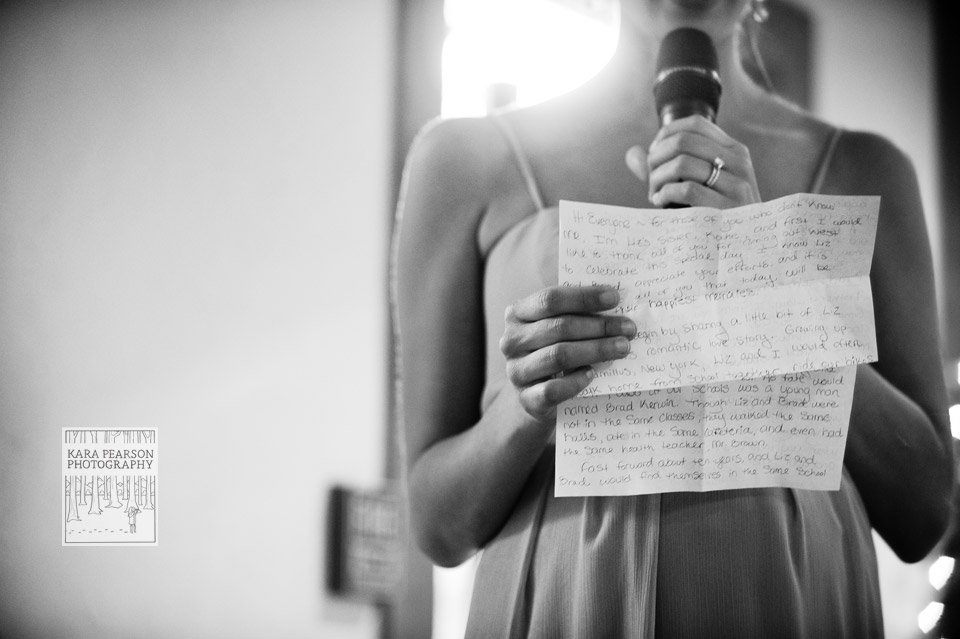 Hi Everyone ~ for those of you who don't know
me, I'm Liz's sister, and first I would
like to thank all of you for coming out west
to celebrate this special day. I know Liz
appreciate your efforts, and it is
all of you that today will be
their happiest memories.
begin by sharing a little bit of Liz
romantic love story. Growing up
Camillus, New York, Liz and I would often
walk home from school together, ride our bikes
of our schools was a young man
named Brad Kerwin. Though Liz and Brad were
not in the same classes, they walked the same
halls, ate in the same cafeteria, and even had
the same health teacher Mr. Brown.
Fast forward about ten years, and Liz and
Brad would find themselves in the same school
KARA PEARSON
PHOTOGRAPHY